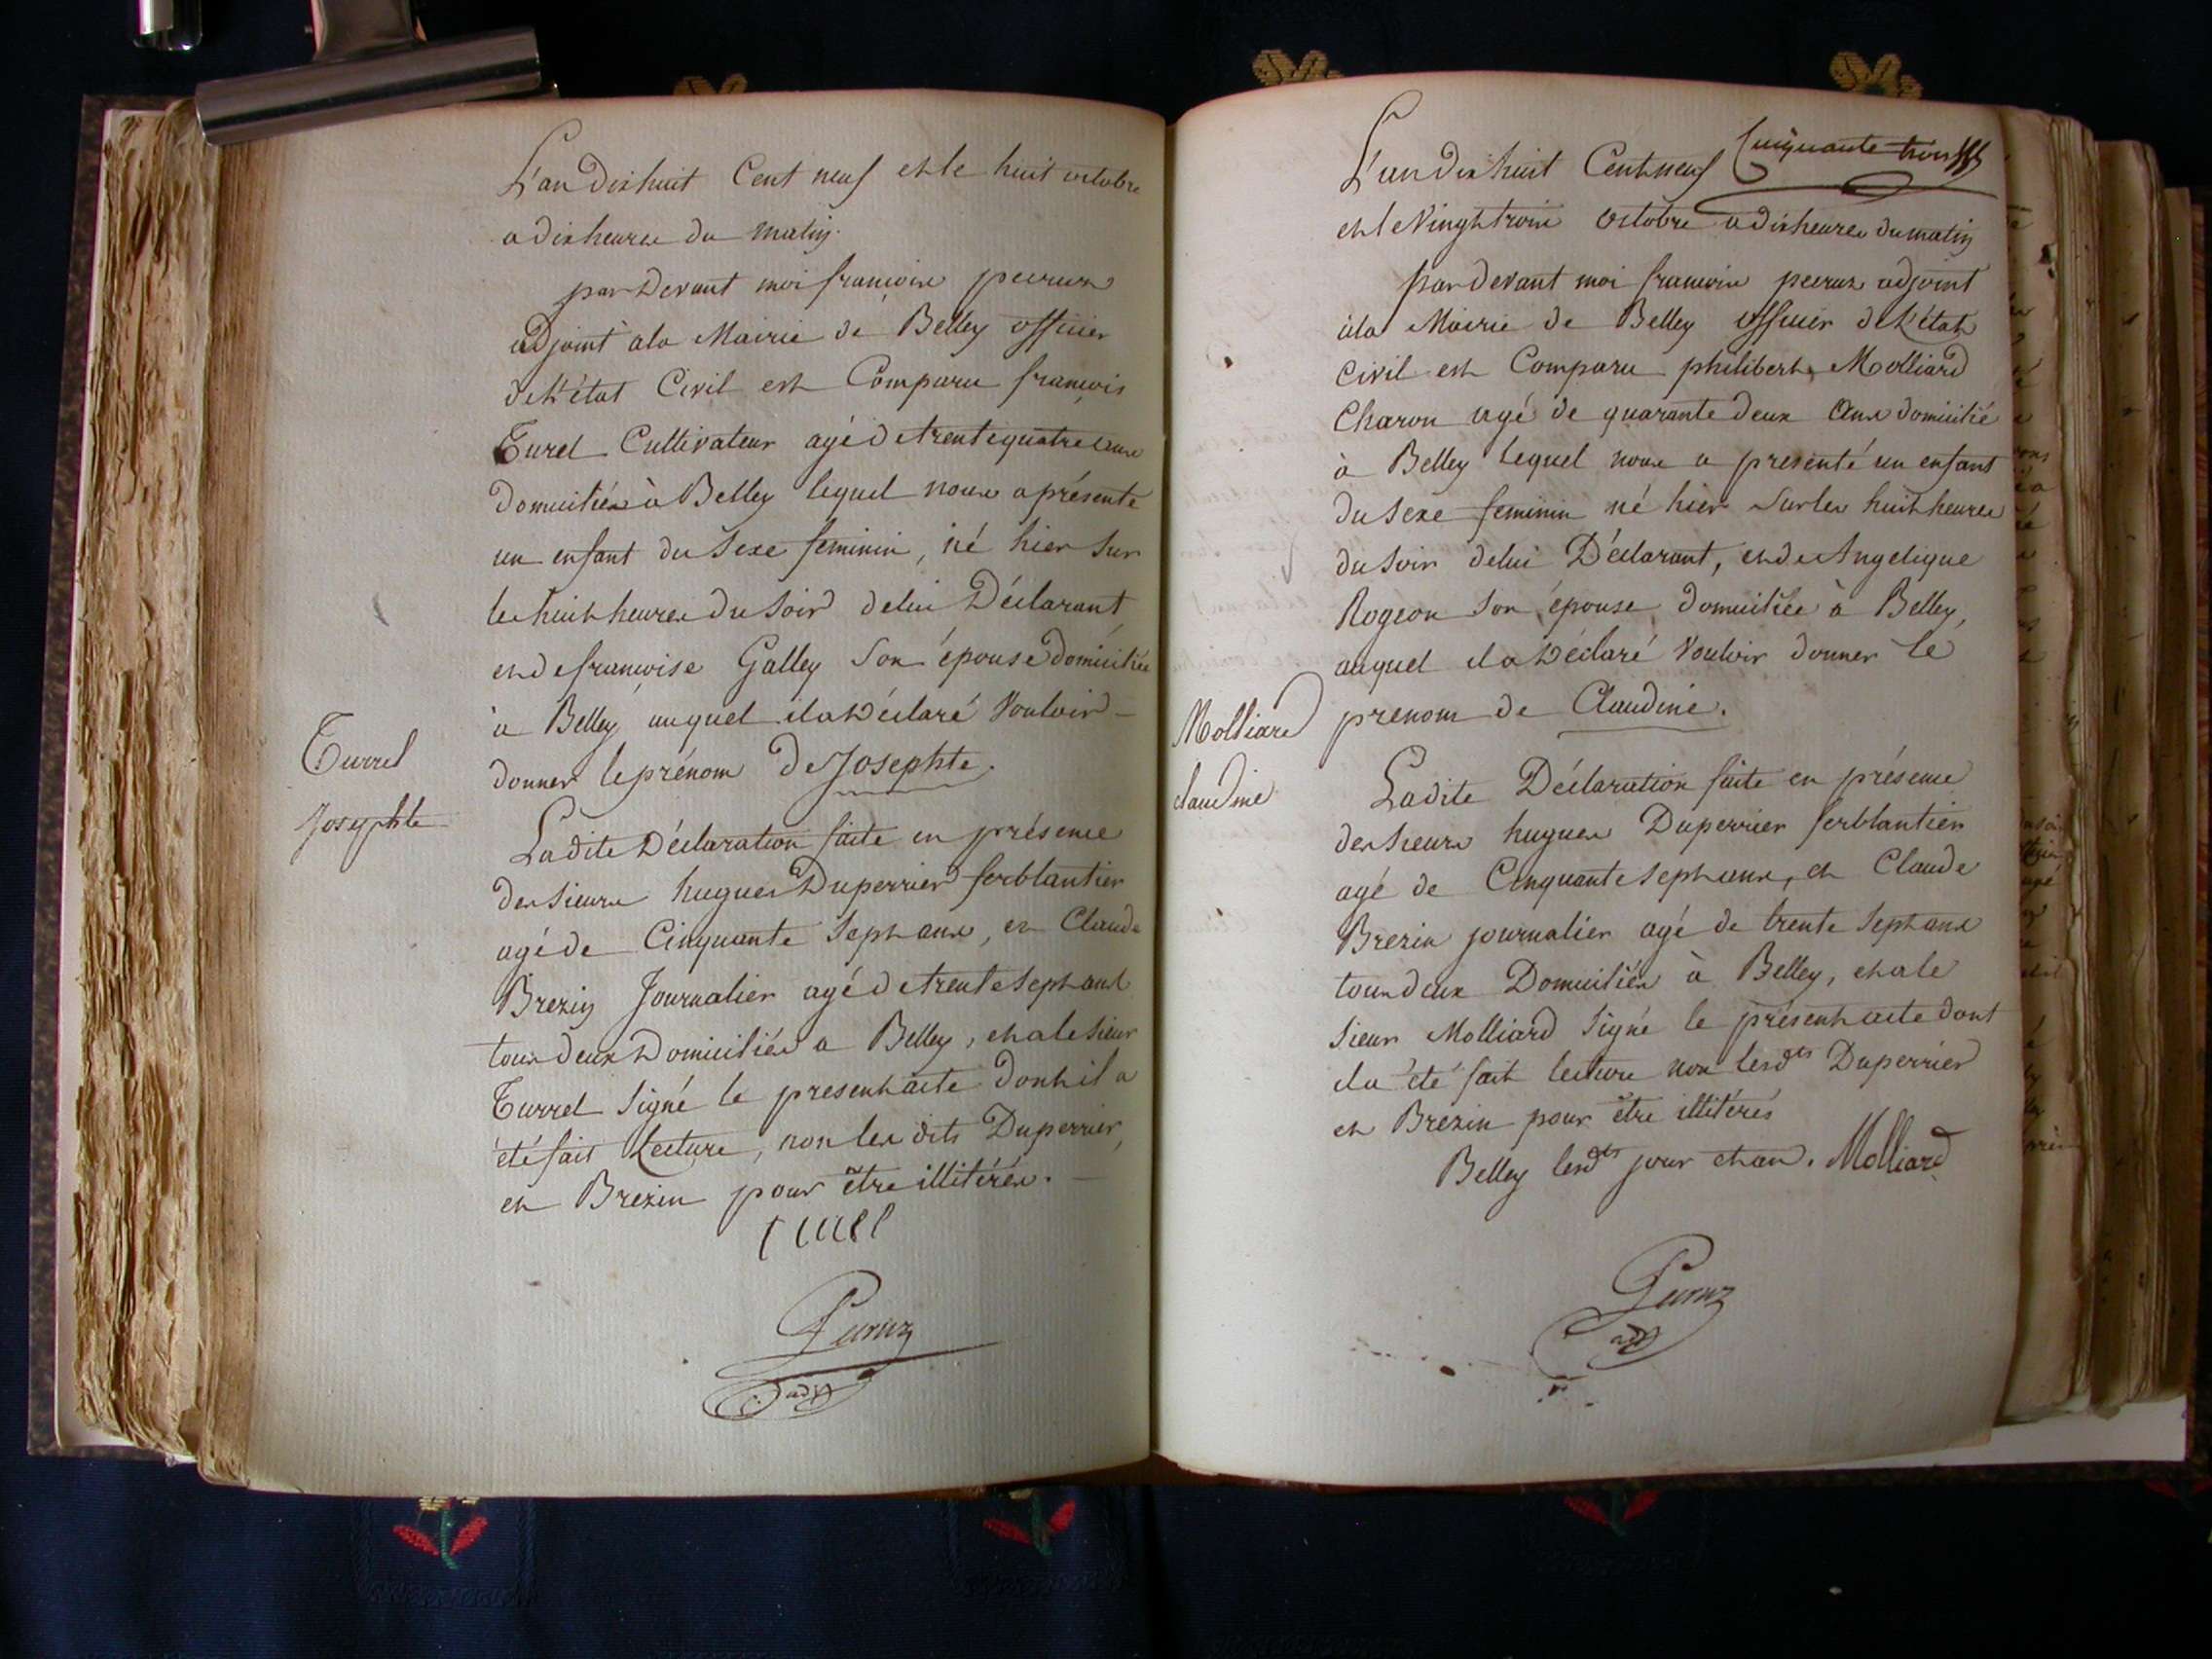 L'an dix huit Cent neuf et le huit octobre
a dix heures du matin
par devant moi francois peeruz
adjoint a la Mairie de Belley officier
de l'état Civil est Comparu francois
Turel Cultivateur agé de trente quatre ans
domiciliés à Belley lequel nous a présenté
un enfant du Sexe feminin, né hier sur
les huit heures du Soir de lui Déclarant
et de francoise Galley Son épouse domiciliée
a Belley auquel il a déclaré Vouloir
donner le prénom de Josephte.
Turrel
Josephte
Ladite Déclaration faite en présence
des sieurs hugues Duperrier ferblantier
agé de Cinquante Sept ans, et Claude
Brezin Journalier agé de trente Sept ans
tous deux Domiciliés a Belley, et a le sieur
Turrel Signé le present acte dont il a
été fait Lecture, non les dits Duperrier,
et Brezin pour être illitérés.
turel
adj
Cinquante trois
L'an dix huit Cent neuf
et le Vingt trois octobre a dix heures du matin
par devant moi francois peeruz adjoint
à la Mairie de Belley officier de l'état
Civil est Comparu philibert Molliard
Charon agé de quarante deux ans domicilié
à Belley lequel nous a presenté un enfant
du Sexe feminin né hier Sur les huit heures
du Soir de lui Déclarant, et de Angelique
Rogeon Son épouse domiciliée à Belley,
auquel il a Déclaré Vouloir donner le
prenom de Claudine.
Molliard
claudine
Ladite Déclaration faite en présence
des Sieurs hugues Duperrier ferblantier
agé de Cinquante Sept ans, et Claude
Brezin journalier agé de trente Sept ans
tous deux Domiciliés à Belley, et a le
Sieur Molliard Signé le présent acte dont
il a été fait lecture non lesdts Duperrier
et Brezin pour être illitérés
Belley lesdts jour et an. Molliard
adj